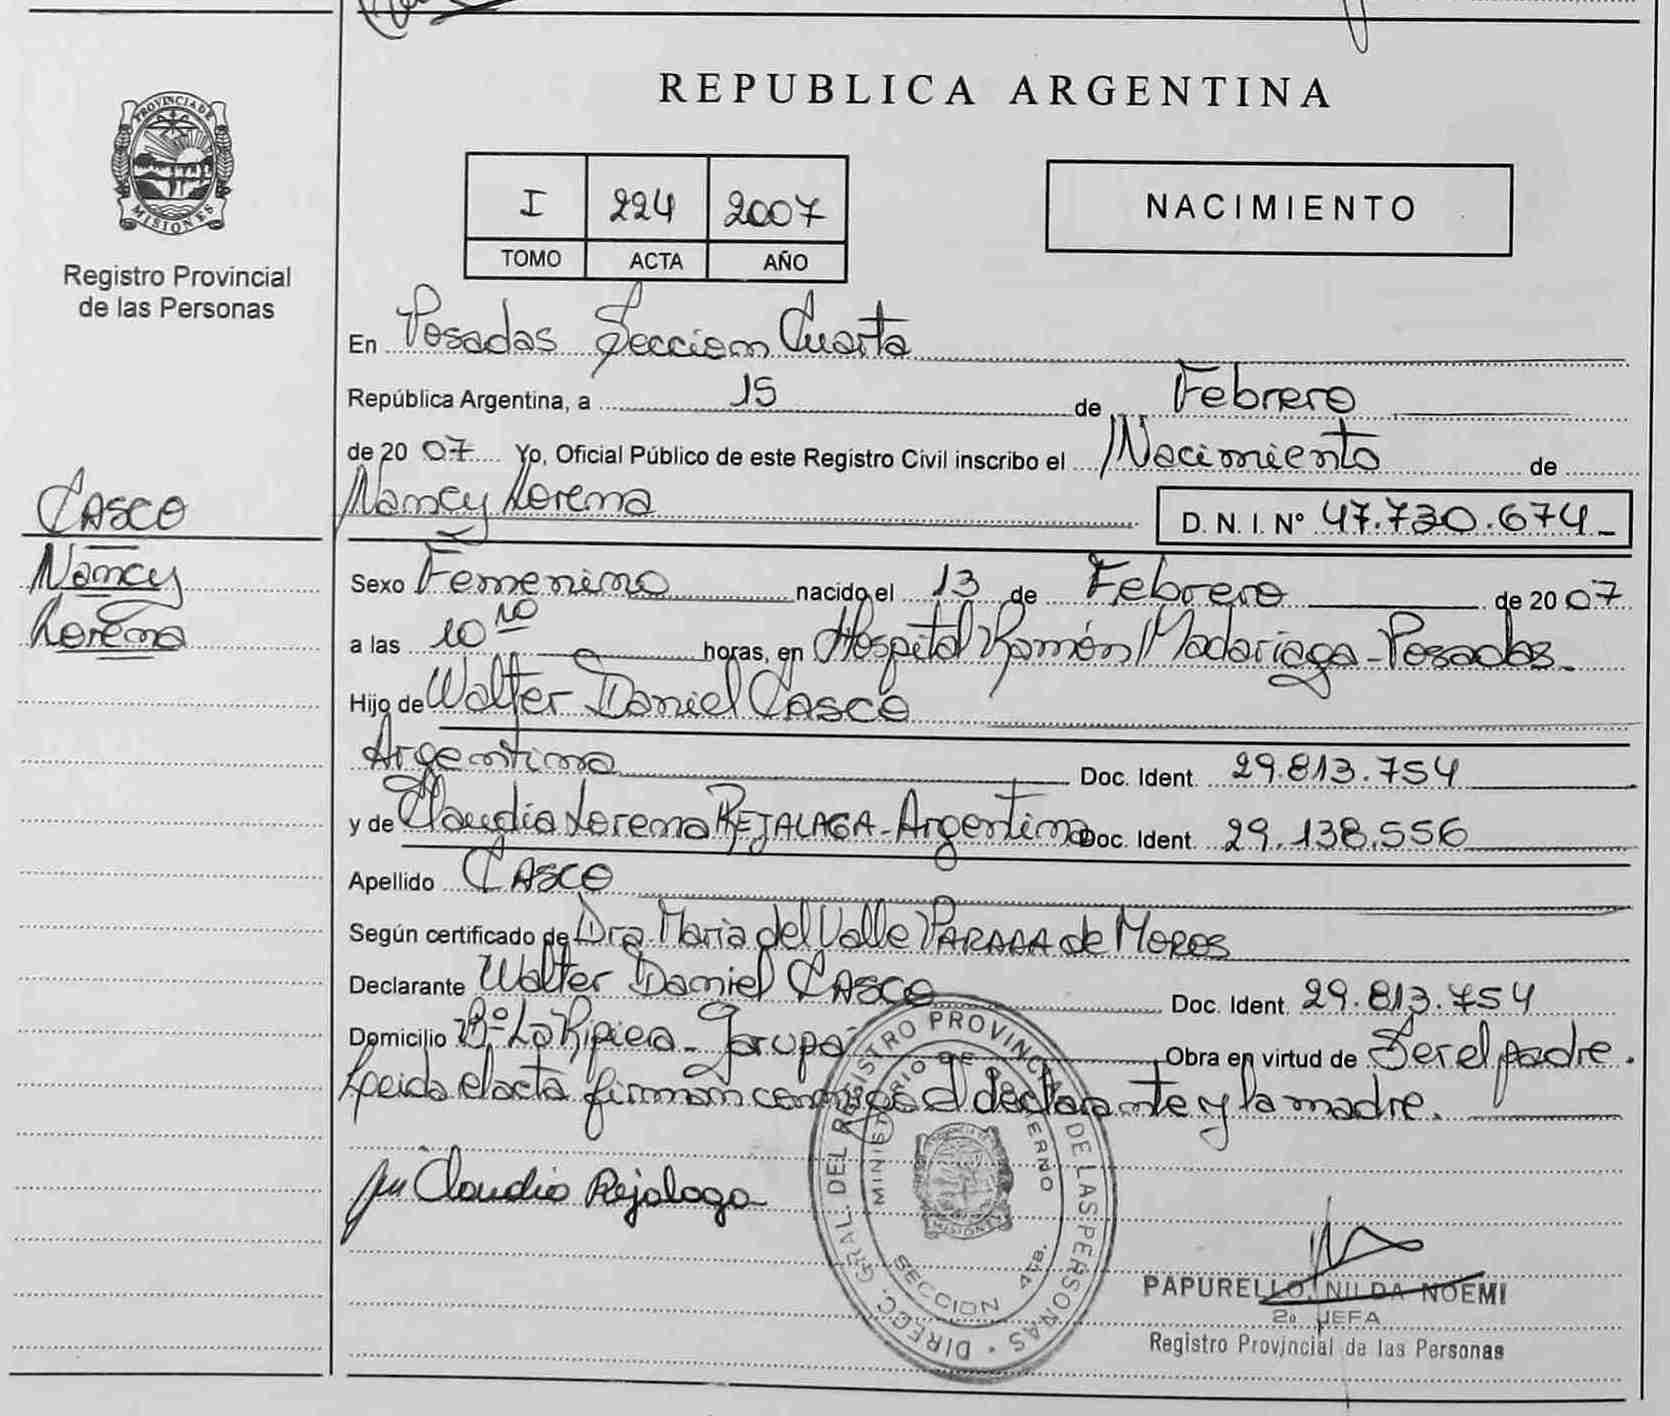 REPUBLICA ARGENTINA
PROVINCIA DE
MISIONES
Registro Provincial
de las Personas
I 224 2007
TOMO ACTA AÑO
NACIMIENTO
En Posadas Seccion Cuarta
República Argentina, a 15 de Febrero
de 2007 Yo, Oficial Público de este Registro Civil inscribo el Nacimiento de
Nancy Lorena D. N. I. Nº 47.730.674
CASCO
Nancy
Lorena
Sexo Femenino nacido el 13 de Febrero de 2007
a las 10 10 horas, en Hospital Ramón Madariaga - Posadas.
Hijo de Walter Daniel CASCO
Argentina Doc. Ident. 29.813.754
y de Claudia Lorena REJALAGA - Argentina Doc. Ident. 29.138.556
Apellido CASCO
Según certificado de Dra. Maria del Valle PARADA de MOROS
Declarante Walter Daniel CASCO Doc. Ident. 29.813.754
Domicilio Bº La Ripiera - Garupá Obra en virtud de Ser el padre.
Leida el acta firman conmigo el declarante y la madre.
Claudia Rejalaga
DIRECC. GRAL. DEL REGISTRO PROVINCIAL DE LAS PERSONAS
MINISTERIO DE GOBIERNO
SECCION 4TA.
PAPURELLO, NILDA NOEMI
2º JEFA
Registro Provincial de las Personas